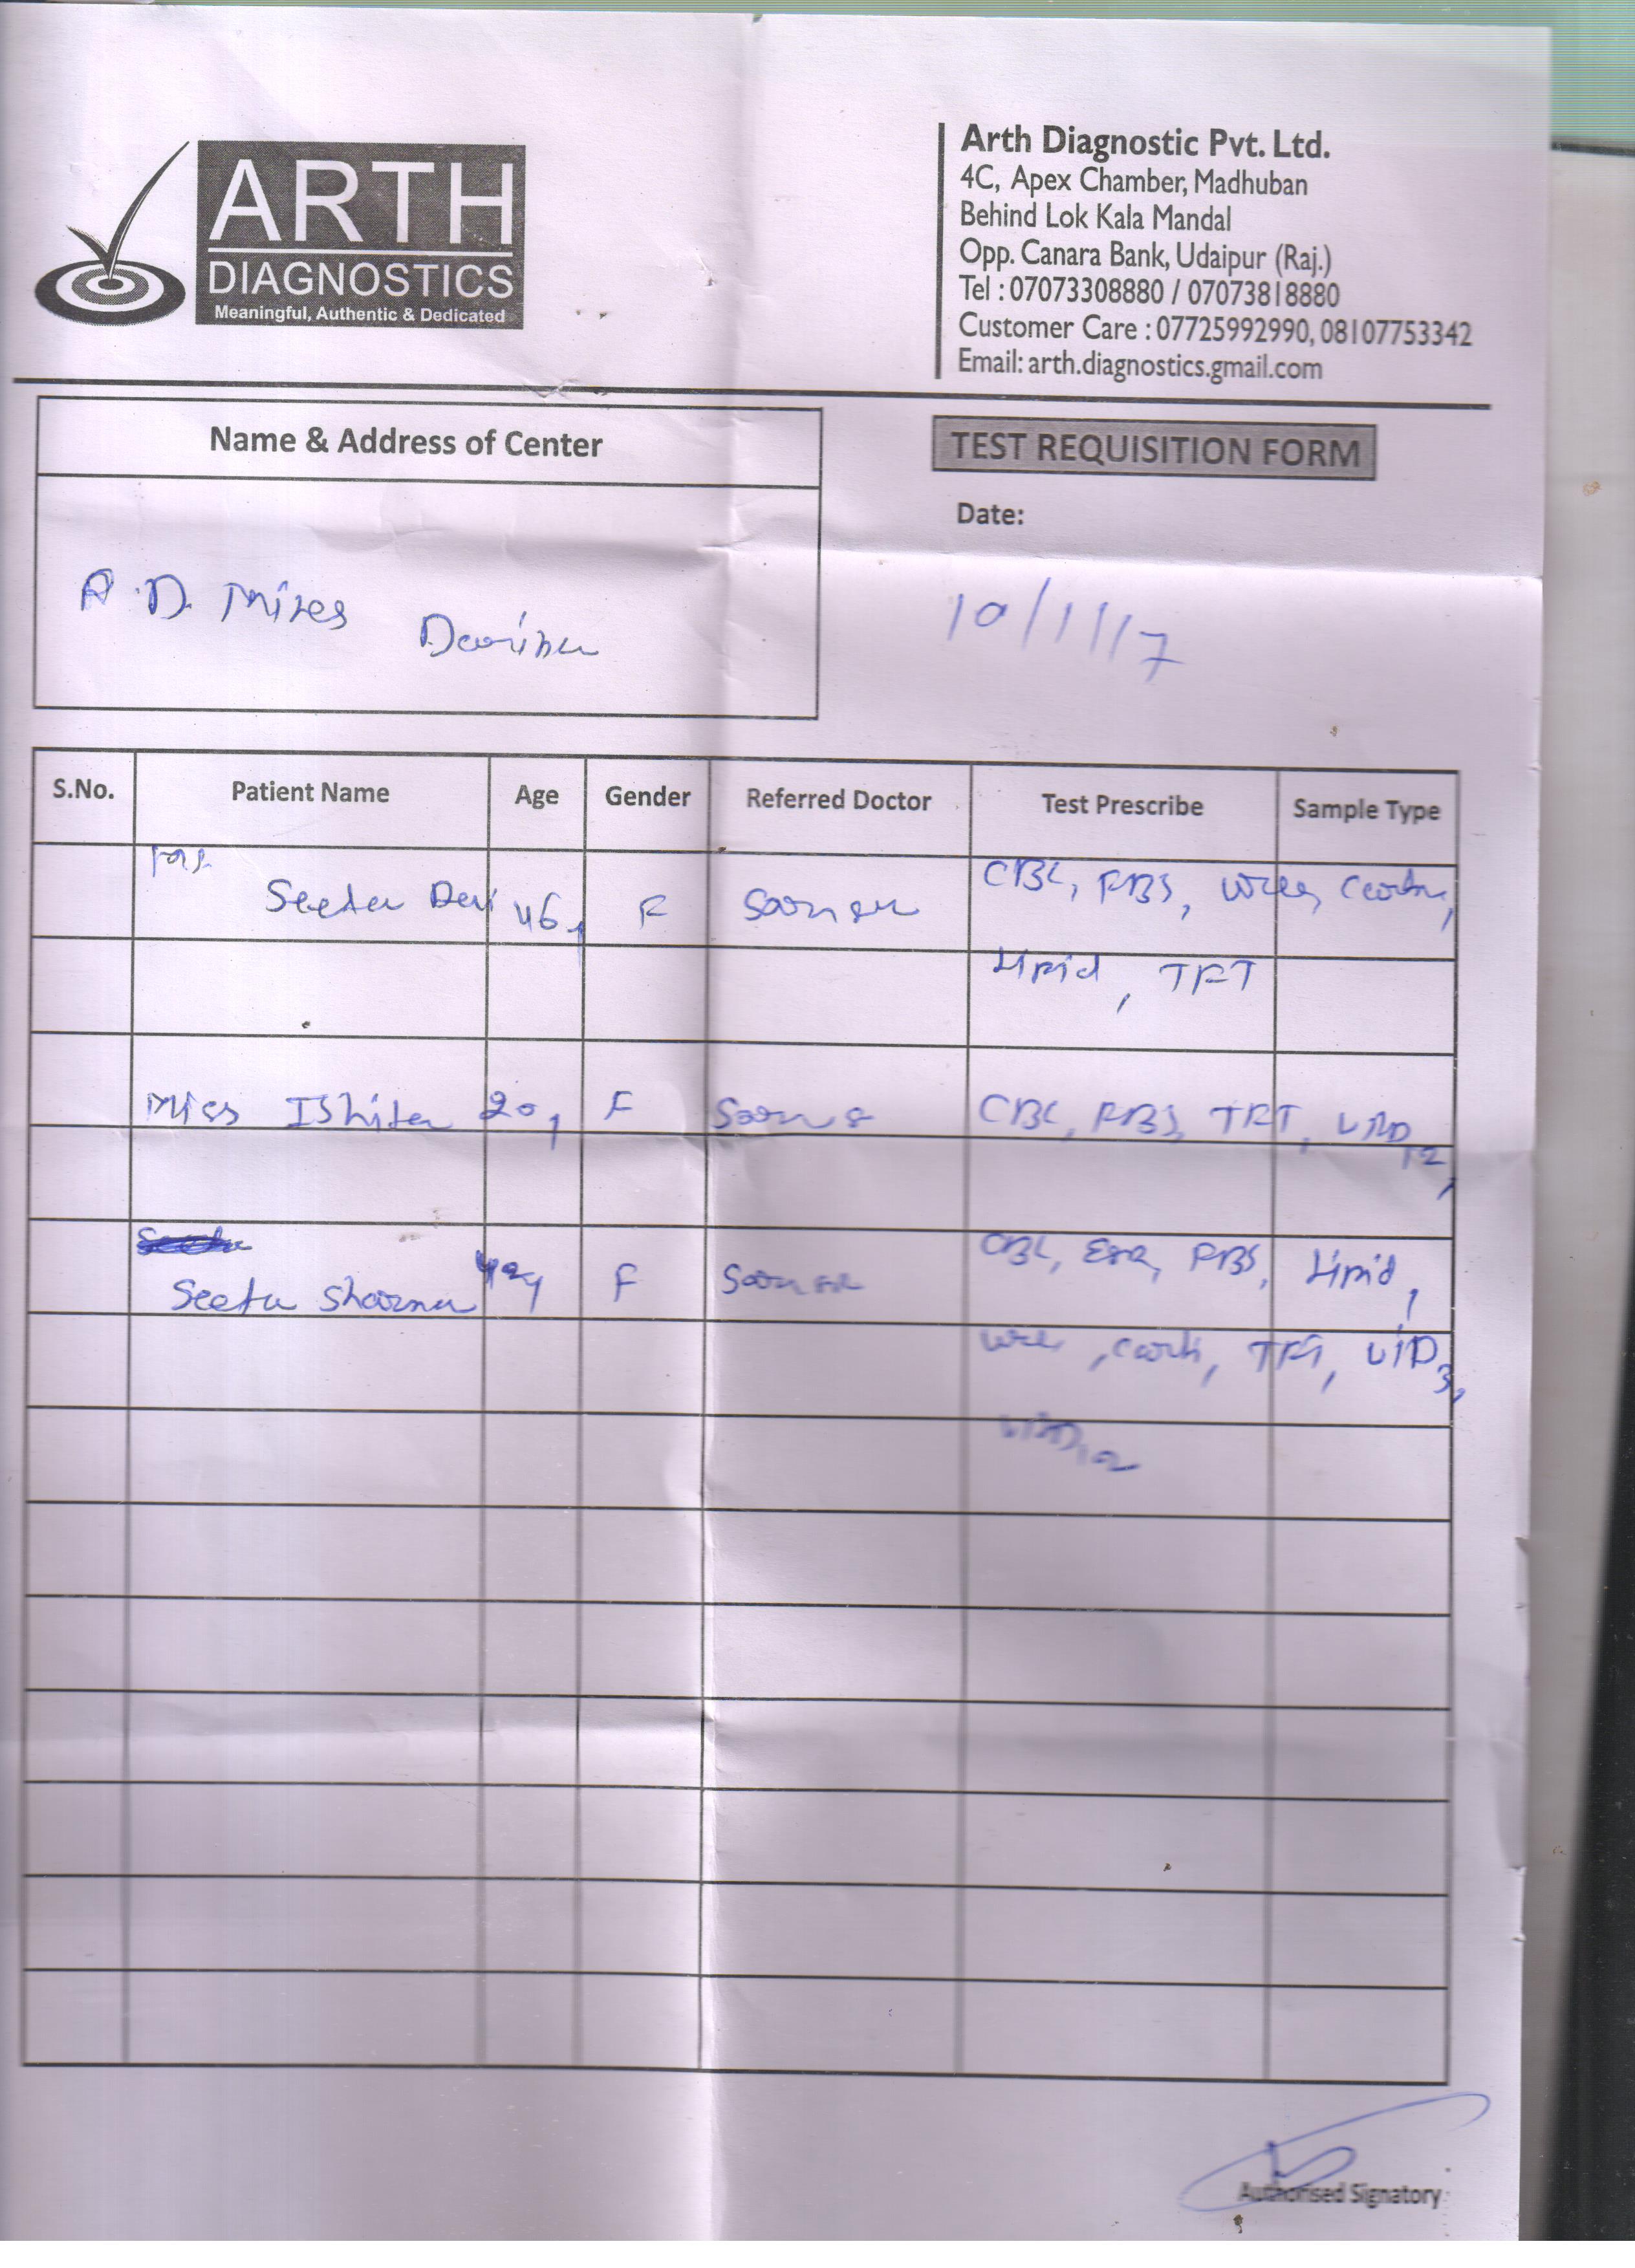 ARTH
DIAGNOSTICS
Meaningful, Authentic & Dedicated
Arth Diagnostic Pvt. Ltd.
4C, Apex Chamber, Madhuban
Behind Lok Kala Mandal
Opp. Canara Bank, Udaipur (Raj.)
Tel : 07073308880 / 07073818880
Customer Care : 07725992990, 08107753342
Email: arth.diagnostics.gmail.com
Name & Address of Center
TEST REQUISITION FORM
Date:
R.D. Mines
10/1/17
S.No. Patient Name Age Gender Referred Doctor Test Prescribe Sample Type
Seeta Devi 46 F CBC, RBS,
Lipid, TFT
Miss Ishita 20 F CBC, RBS, TFT,
Seeta Sharma F CBC, ESR, RBS, Lipid,
TFT, VitD3,
Authorised Signatory